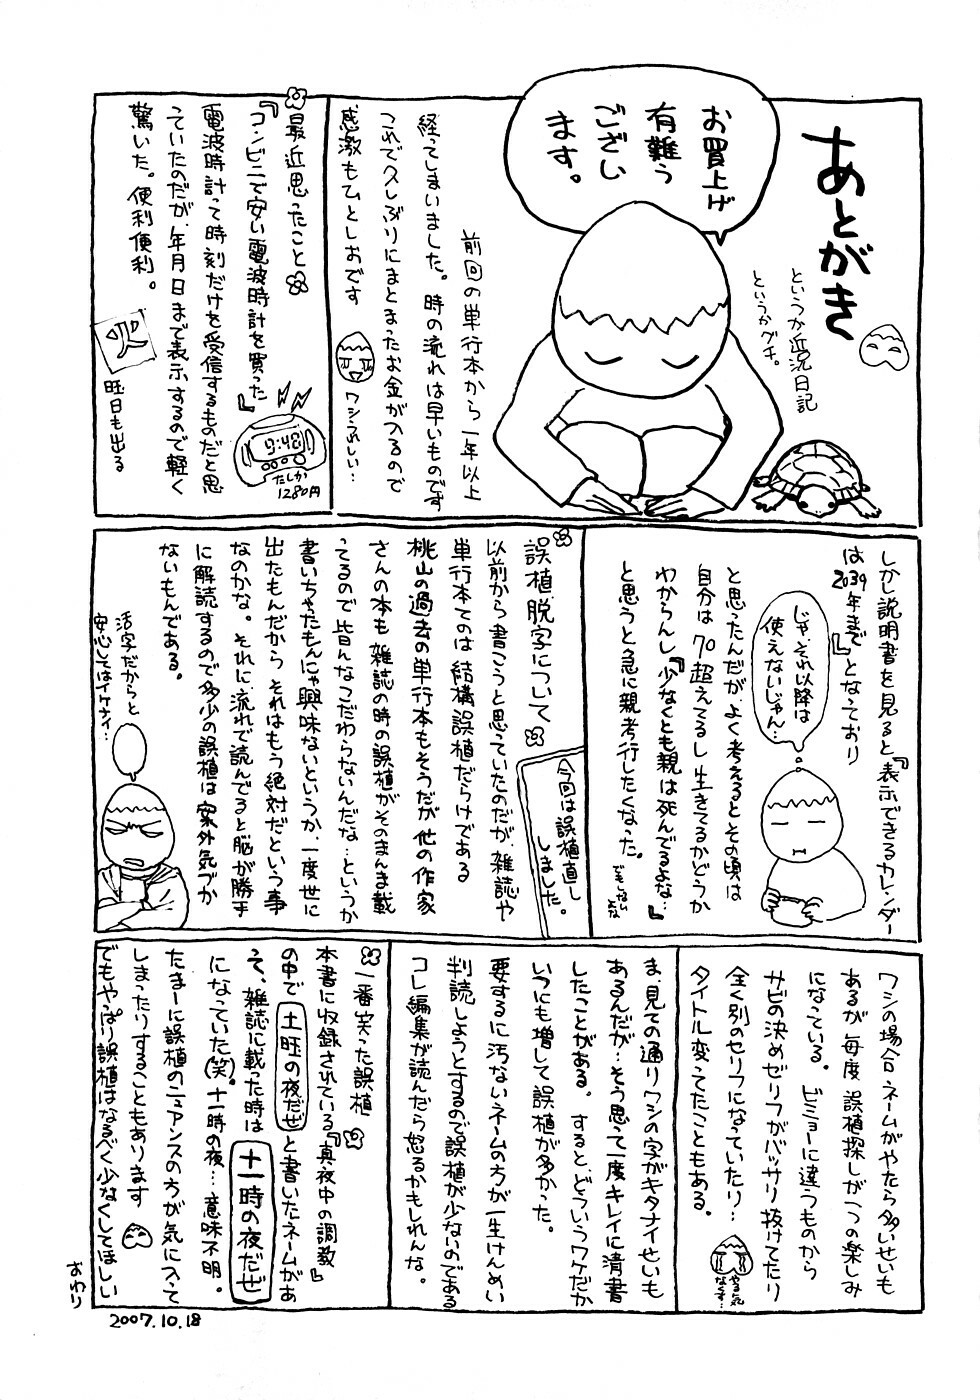 あとがき
というか近況日記
というかグチ。
お買上げ
有難う
ござい
ます。
前回の単行本から一年以上
経ってしまいました。時の流れは早いものです
これで久しぶりにまとまったお金が入るので
感激もひとしおです
ワシうれしい…
最近思ったこと
『コンビニで安い電波時計を買った』
電波時計って時刻だけを受信するものだと思
っていたのだが、年月日まで表示するので軽く
驚いた。便利便利。
9:48
たしか
1280円
火
曜日も出る
しかし説明書を見ると『表示できるカレンダー
は2039年まで』となっており
じゃ、それ以降は
使えないじゃん…
と思ったんだが、よく考えるとその頃は
自分は70超えてるし生きてるかどうか
わからんし『少なくとも親は死んでるよな…』
と思うと急に親考行したくなった。
誤植脱字について
今回は誤植直し
しました。
以前から書こうと思っていたのだが、雑誌や
単行本てのは結構誤植だらけである
桃山の過去の単行本もそうだが他の作家
さんの本も雑誌の時の誤植がそのまんま載
ってるので皆んなこだわらないんだな…というか
書いちゃたもんにゃ興味ないというか、一度世に
出たもんだからそれはもう絶対だという事
なのかな。それに流れで読んでると脳が勝手
に解読するので多少の誤植は案外気づか
ないもんである。
活字だからと
安心してはイケナイ…
ワシの場合ネームがやたら多いせいも
あるが毎度誤植探しが一つの楽しみ
になっている。ビミョーに違うものから
サビの決めゼリフがバッサリ抜けてたり
全く別のセリフになっていたり…
タイトル変ってたこともある。
やる気
なくす…
ま、見ての通りワシの字がキタナイせいも
あるんだが…そう思って一度キレイに清書
したことがある。すると、どういうワケだか
いつにも増して誤植が多かった。
要するに汚ないネームの方が一生けんめい
判読しようとするので誤植が少ないのである
コレ編集が読んだら怒るかもしれんな。
一番笑った誤植
本書に収録されている『真夜中の調教』
の中で土旺の夜だぜと書いたネームがあ
って、雑誌に載った時は十一時の夜だぜ
になっていた(笑)。十一時の夜…意味不明。
たまーに誤植のニュアンスの方が気に入って
しまったりすることもあります
でもやっぱり誤植はなるべく少なくしてほしい
おわり
2007.10.18